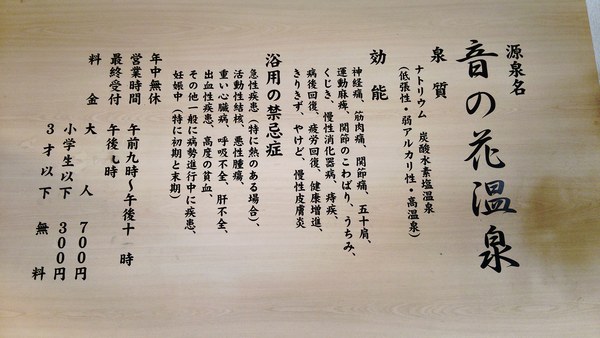 源泉名
音の花温泉
泉質
ナトリウム 炭酸水素塩温泉
(低張性・弱アルカリ性・高温泉)
効能
神経痛、筋肉痛、関節痛、五十肩、
運動麻痺、関節のこわばり、うちみ、
くじき、慢性消化器病、痔疾、
病後回復、疲労回復、健康増進、
きりきず、やけど、慢性皮膚炎
浴用の禁忌症
急性疾患(特に熱のある場合)、
活動性結核、悪性腫瘍、
重い心臓病、呼吸不全、肝不全、
出血性疾患、高度の貧血、
その他一般に病勢進行中に疾患、
妊娠中(特に初期と末期)
年中無休
営業時間 午前九時〜午後十 時
最終受付 午後 時
料金 大人 700円
小学生以下 300円
3才以下 無料